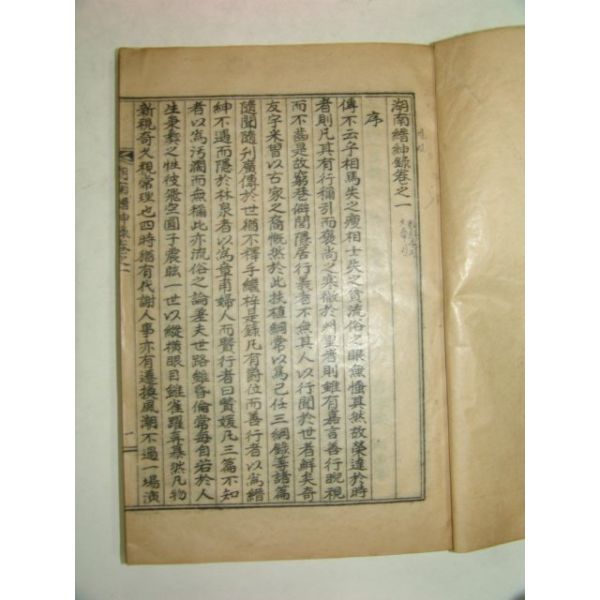 湖南縉紳錄卷之一
序
傳不云乎相馬失之瘦相士失之貧流俗之眼無恠其然故榮達於時
者則凡其有行稱引而褒尚之寒微於州里者則雖有嘉言善行睨視
而不齒是故窮巷僻閭隱居行義者不無其人以行聞於世者鮮矣奇
友字來曾以古家之裔慨然於此扶植綱常以爲己任三綱錄等諸篇
隨聞隨刊廣傳於世猶不釋手繼梓是錄凡有爵位而善行者以爲縉
紳不遇而隱於林泉者以爲章甫婦人而賢行者曰賢媛凡三篇不知
者以爲汚瀾而無稱此亦流俗之論差夫世路雖昏倫常每自若於人
生秉彝之性彼飛空圓子震眩一世以縱橫眼目雖雀羅
新視奇久視常理也四時猶有代謝人事亦有遷換風潮不過一場演